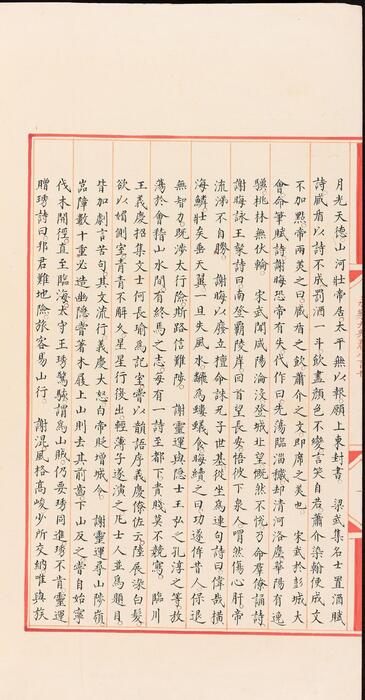 月光天德山河壯帝居太平無以報願上東封書 梁武集名士置酒賦
詩臧盾以詩不成罰酒一斗飲盡顔色不變言笑自若蕭介染翰便成文
不加點帝兩美之曰臧盾之飲蕭介之文即席之美也 宋武於彭城大
會命筆賦詩謝晦恐帝有失代作曰先蕩臨淄穢却清河洛塵華陽有逸
驥桃林無伏輪 宋武聞咸陽淪沒登城北望慨然不悦乃命群僚誦詩
謝晦詠王粲詩曰南登霸陵岸回首望長安悟彼下泉人喟然傷心肝帝
流涕不自勝 謝晦以廢立檀命誅兄子世基從坐為連句詩曰偉哉横
海鱗壯矣垂天翼一旦失風水翻為螻蟻食晦續之曰功遂侔昔人保退
無智力既涉太行險斯路信難陟 謝靈運與隱士王弘之孔淳之等放
蕩於會稽山水間有終焉之志每有一詩至都下貴賤莫不競寫 臨川
王義慶招集文士何長瑜為記室嘗以韻語序義慶僚佐云陸展染白髮
欲以媚側室青青不解久星星行復出輕薄子遂演之凡士人並為題目
皆加劇言苦句其文流行義慶大怒白帝貶增城令 謝靈運尋山陟嶺
嵓障數十重必造幽隱嘗著木屐上山則去其前下山反之嘗自始寧
伐木開徑直至臨海太守王琇驚駭謂為山賊仍要琇同進琇不肯靈運
贈琇詩曰邦君難地險旅客易山行 謝混風格高峻少所交納唯與族